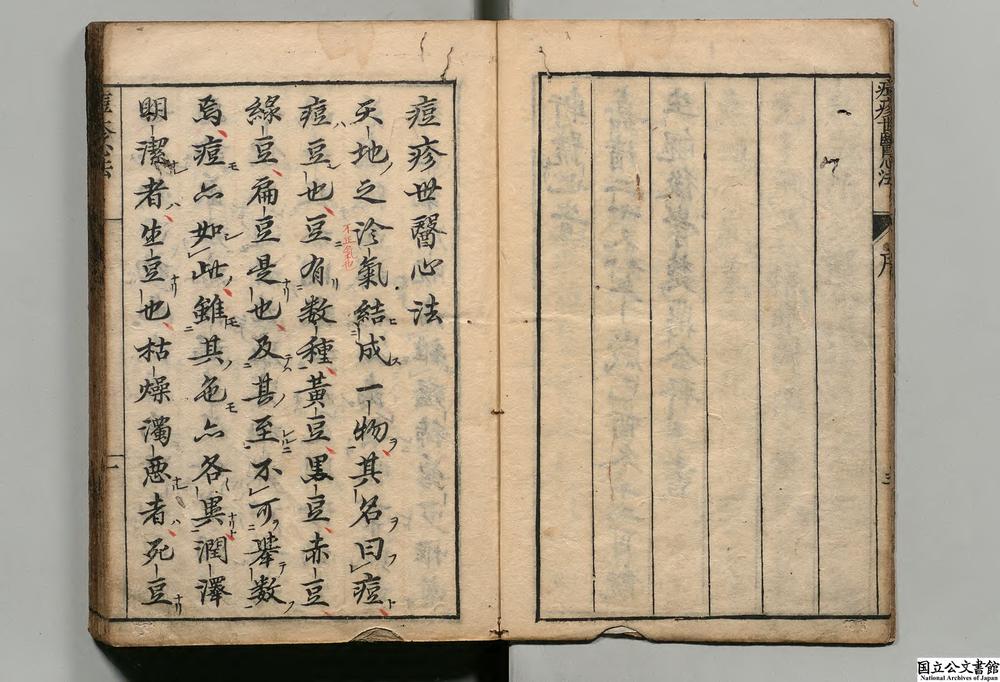 痘疹世醫心法
序
三
痘疹世醫心法
天地之沴氣結成一物其名曰痘
不正氣也
痘豆也豆有数種黃豆黒豆赤豆
綠豆扁豆是也及其至不可舉数
焉痘亦如此雖其色亦各異潤澤
明潔者生豆也枯燥濁悪者死豆
一
国立公文書館
National Archives of Japan